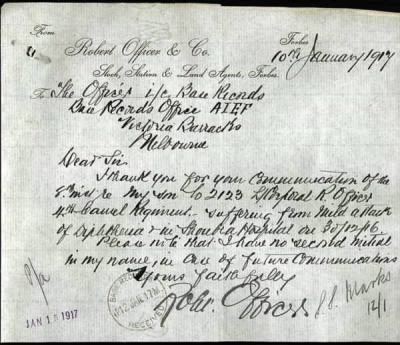 From
Robert Officer & Co.
Stock, Station & Land Agents, Forbes.
Forbes
10th January 1917
To The Officer i/c Base Records
Base Records Office AIEF
Victoria Barracks
Melbourne
Dear Sir
I thank you for your Communication of the
inst re my son No 2123 L/Corporal R Officer
4th Camel Regiment suffering from Mild attack
of in Hospital on 30/12/16.
Please note that I have no second initial
in my name, in case of future Communications
Yours faithfully
Robt. Officer
P/a
JAN 15 1917
BASE RECORDS
RECEIVED
Marks
12/1